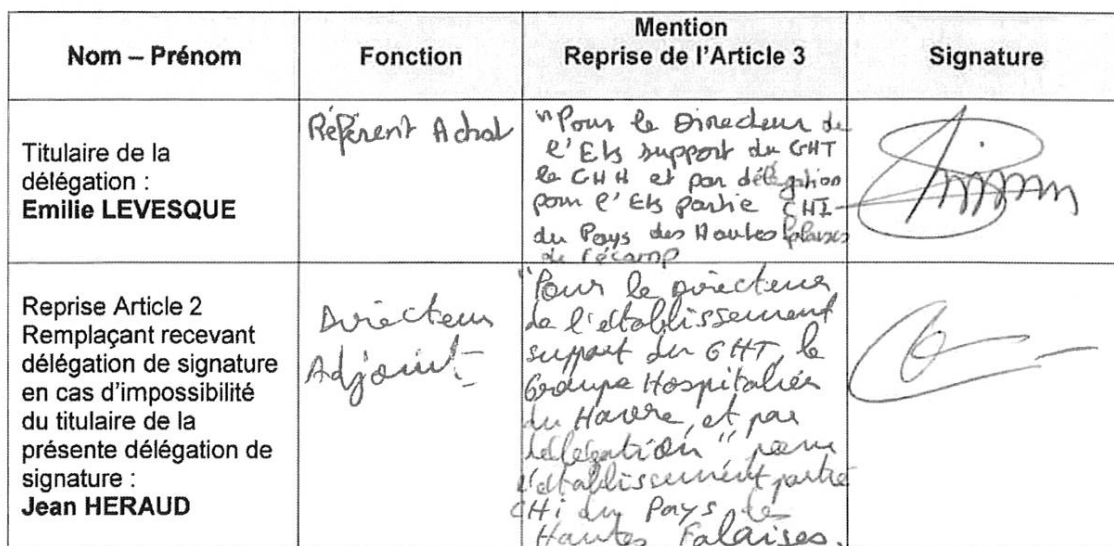 Nom – Prénom
Fonction
Mention
Reprise de l'Article 3
Signature
Titulaire de la
délégation :
Emilie LEVESQUE
Référent Achat
"Pour le Directeur de
l'Ets support du GHT
le GHH et par délégation
pour l'Ets partie CHI
du Pays des Hautes Falaises
de Fécamp
Reprise Article 2
Remplaçant recevant
délégation de signature
en cas d'impossibilité
du titulaire de la
présente délégation de
signature :
Jean HERAUD
Directeur
Adjoint
"Pour le Directeur
de l'établissement
support du GHT, le
Groupe Hospitalier
du Havre, et par
délégation" pour
l'établissement partie
CHi du Pays des
Hautes Falaises.